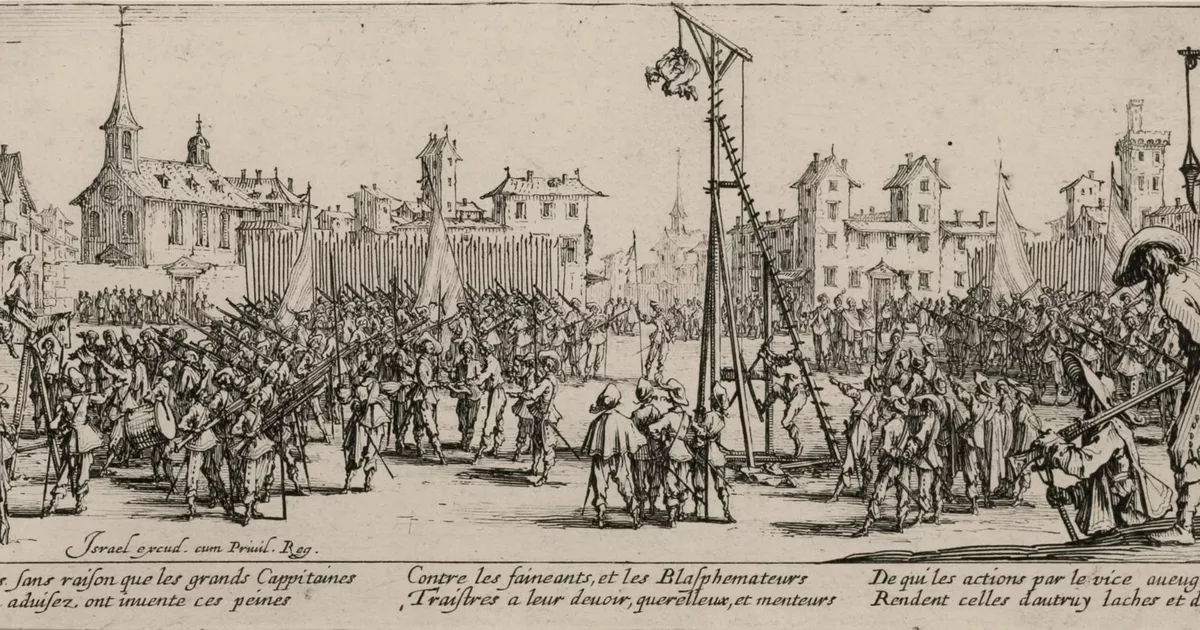 Israel excud. cum Priuil. Reg.
sans raison que les grands Cappitaines
aduisez, ont inuente ces peines
Contre les faineants, et les Blasphemateurs
Traistres a leur deuoir, querelleux, et menteurs
De qui les actions par le vice aueug
Rendent celles dautruy laches et d